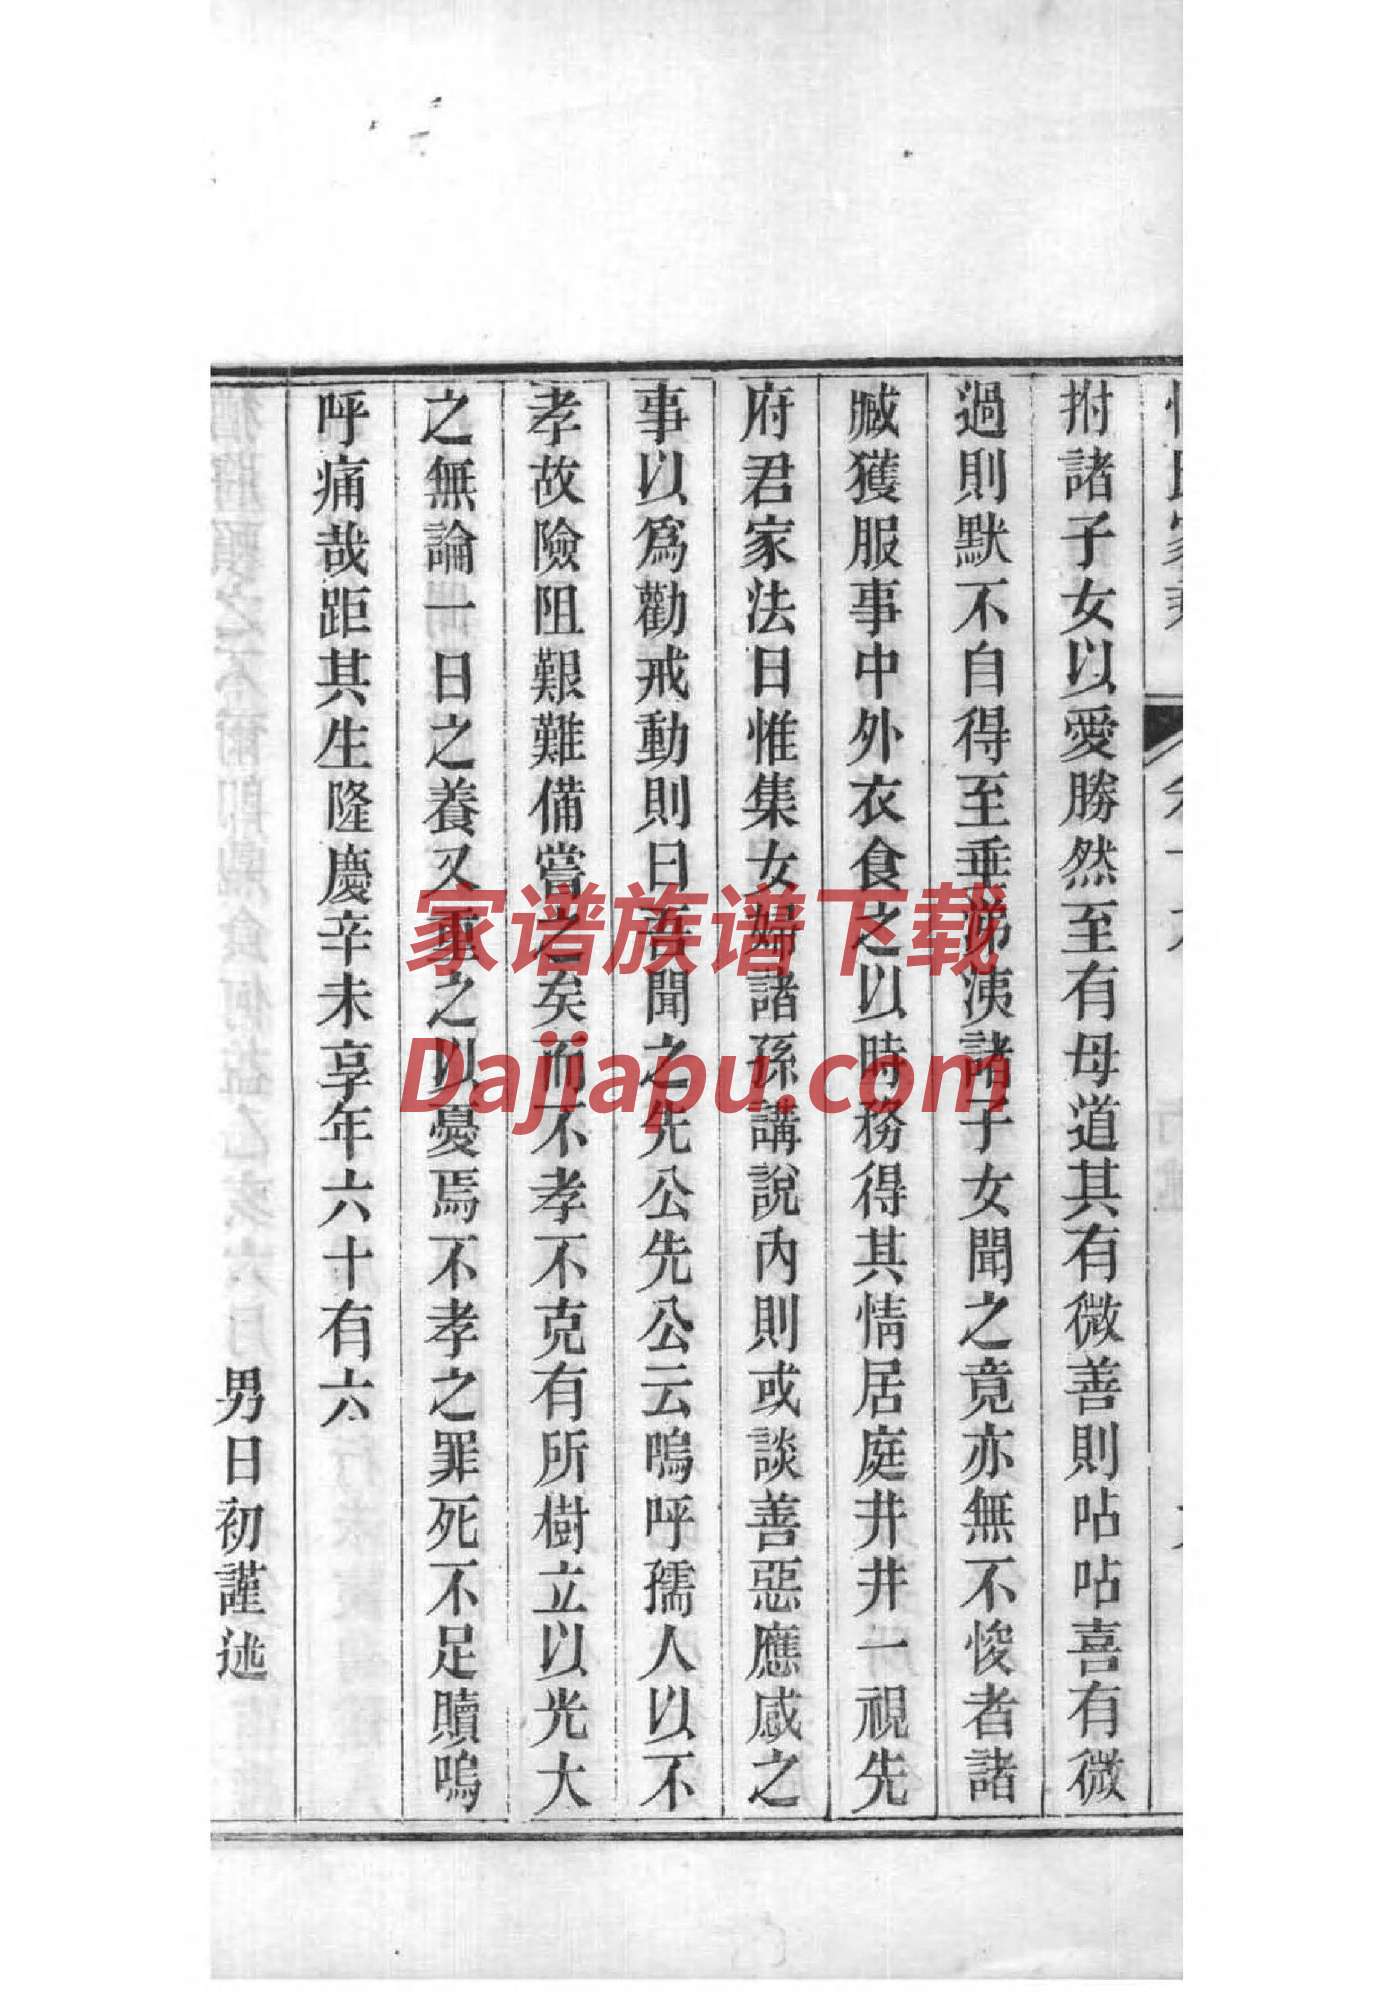 拊諸子女以愛勝然至有母道其有微善則呫呫喜有微
過則默不自得至垂涕洟諸子女聞之竟亦無不悛者諸
臧獲服事中外衣食之以時務得其情居庭井井一視先
府君家法日惟集女婦諸孫講說內則或談善惡應感之
事以爲勸戒動則曰吾聞之先公先公云嗚呼孺人以不
孝故險阻艱難備嘗之矣而不孝不克有所樹立以光大
之無論一日之養又重之以憂焉不孝之罪死不足贖嗚
呼痛哉距其生隆慶辛未享年六十有六
男日初謹述
家谱族谱下载
Dajiapu.com